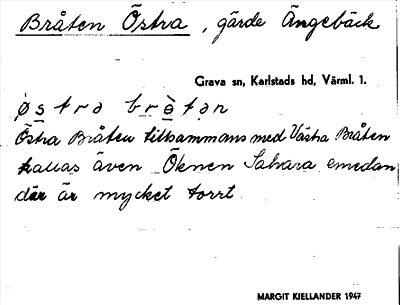 Bråten Östra, gärde Ängebäck
Grava sn, Karlstads hd, Värml. 1.
ø̀s̲tra brè̲tən
Östra Bråten tillsammans med Västra Bråten
kallas även Öknen Sahara emedan
där är mycket torrt.
MARGIT KJELLANDER 1947